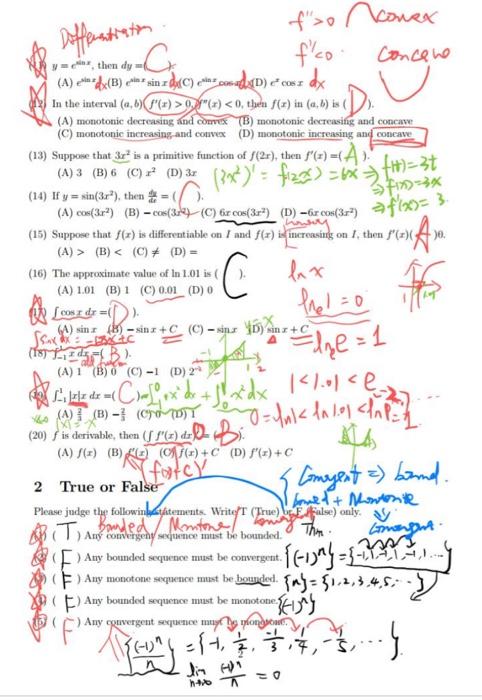 Differentiation
f''>0 convex
f''<0 concave
(11) y = e^{sin x}, then dy = ( C
(A) e^{sin x} dx (B) e^{sin x} sin x dx (C) e^{sin x} cos x dx (D) e^x cos x dx
(12) In the interval (a, b), f'(x) > 0, f''(x) < 0, then f(x) in (a, b) is ( D ).
(A) monotonic decreasing and convex (B) monotonic decreasing and concave
(C) monotonic increasing and convex (D) monotonic increasing and concave
(13) Suppose that 3x² is a primitive function of f(2x), then f'(x) =( A ).
(A) 3 (B) 6 (C) x² (D) 3x
(3x²)' = f(2x) = 6x ⇒ f(t) = 3t
⇒ f(x) = 3x
⇒ f'(x) = 3
(14) If y = sin(3x²), then dy/dx = ( C ).
(A) cos(3x²) (B) − cos(3x²) (C) 6x cos(3x²) (D) −6x cos(3x²)
(15) Suppose that f(x) is differentiable on I and f(x) is increasing on I, then f'(x)( A )0.
(A) > (B) < (C) ≠ (D) =
(16) The approximate value of ln 1.01 is ( C ).
(A) 1.01 (B) 1 (C) 0.01 (D) 0
ln x
ln 1 = 0
(17) ∫ cos x dx =( D ).
(A) sin x (B) − sin x + C (C) − sin x (D) sin x + C
∫sinx dx = -cosx + C
y=x
ln e = 1
(18) ∫₋₁¹ x dx =( B ).
(A) 1 (B) 0 (C) −1 (D) 2
1 < 1.01 < e
(19) ∫₋₁¹ |x|x dx =( C ) = ∫₋₁⁰ -x² dx + ∫₀¹ x² dx
(A) 2/3 (B) −2/3 (C) 0 (D) 1
x<0 |x| = -x
0 = ln1 < ln 1.01 < ln e = 1
(20) f is derivable, then (∫ f'(x) dx)' = ( B ).
(A) f(x) (B) f'(x) (C) f(x) + C (D) f'(x) + C
(f(x)+C)'
2 True or False
Convergent ⇒ bound.
bound + Monotonic
⇒ Convergent.
Please judge the following statements. Write T (True) or F (False) only.
Bounded / Monotone / Convergent Thm
(1) ( T ) Any convergent sequence must be bounded.
(2) ( F ) Any bounded sequence must be convergent. {(-1)^n} = {-1, 1, -1, 1, -1, 1, ...}
(3) ( F ) Any monotone sequence must be bounded. {n} = {1, 2, 3, 4, 5, ...}
(4) ( F ) Any bounded sequence must be monotone. {(-1)^n}
(5) ( F ) Any convergent sequence must be monotone.
{(-1)^n/n} = {-1, 1/2, -1/3, 1/4, -1/5, ...}
lim n→∞ (-1)^n/n = 0